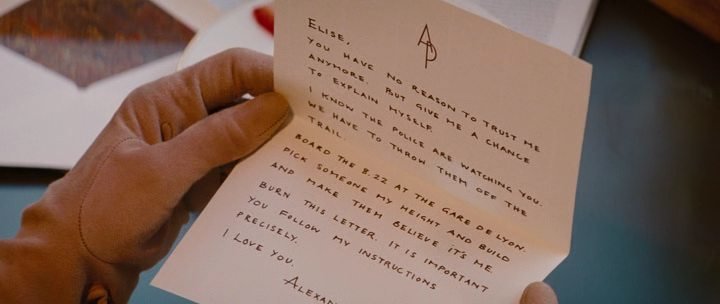 AP
ELISE,
YOU HAVE NO REASON TO TRUST ME
ANYMORE. BUT GIVE ME A CHANCE
TO EXPLAIN MYSELF.
I KNOW THE POLICE ARE WATCHING YOU.
WE HAVE TO THROW THEM OFF THE
TRAIL.
BOARD THE 8:22 AT THE GARE DE LYON.
PICK SOMEONE MY HEIGHT AND BUILD
AND MAKE THEM BELIEVE IT'S ME
BURN THIS LETTER. IT IS IMPORTANT
YOU FOLLOW MY INSTRUCTIONS
PRECISELY.
I LOVE YOU.